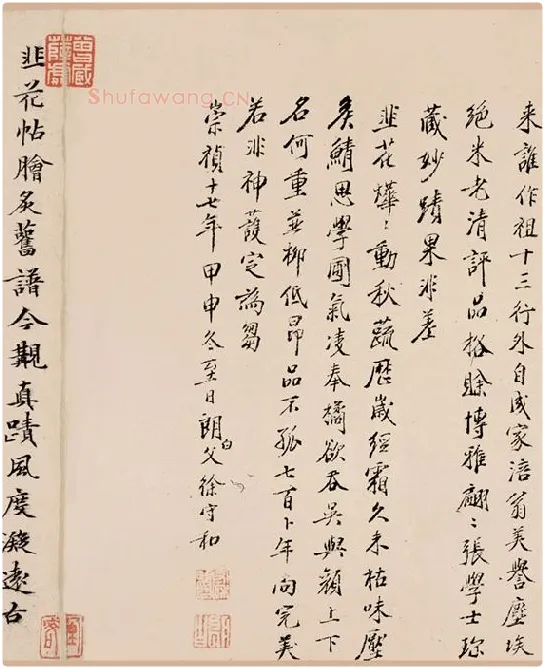 来誰作祖十三行外自成家涪翁美譽塵埃
絕米老清評品格賒博雅翩〻張學士珎
蔵妙蹟果非差
韭花燁〻動秋蔬歷嵗經霜久未枯味壓
矦鯖思學圃氣凌奉橘欲吞吳與顏上下
名何重並柳低昂品不孤七百卜年尚完美
若非神護定為芻
崇禎十七年甲申冬至日朗父徐守和
白
韭花帖膾炙舊譜今觀真蹟風度凝遠古
Shufawang.CN